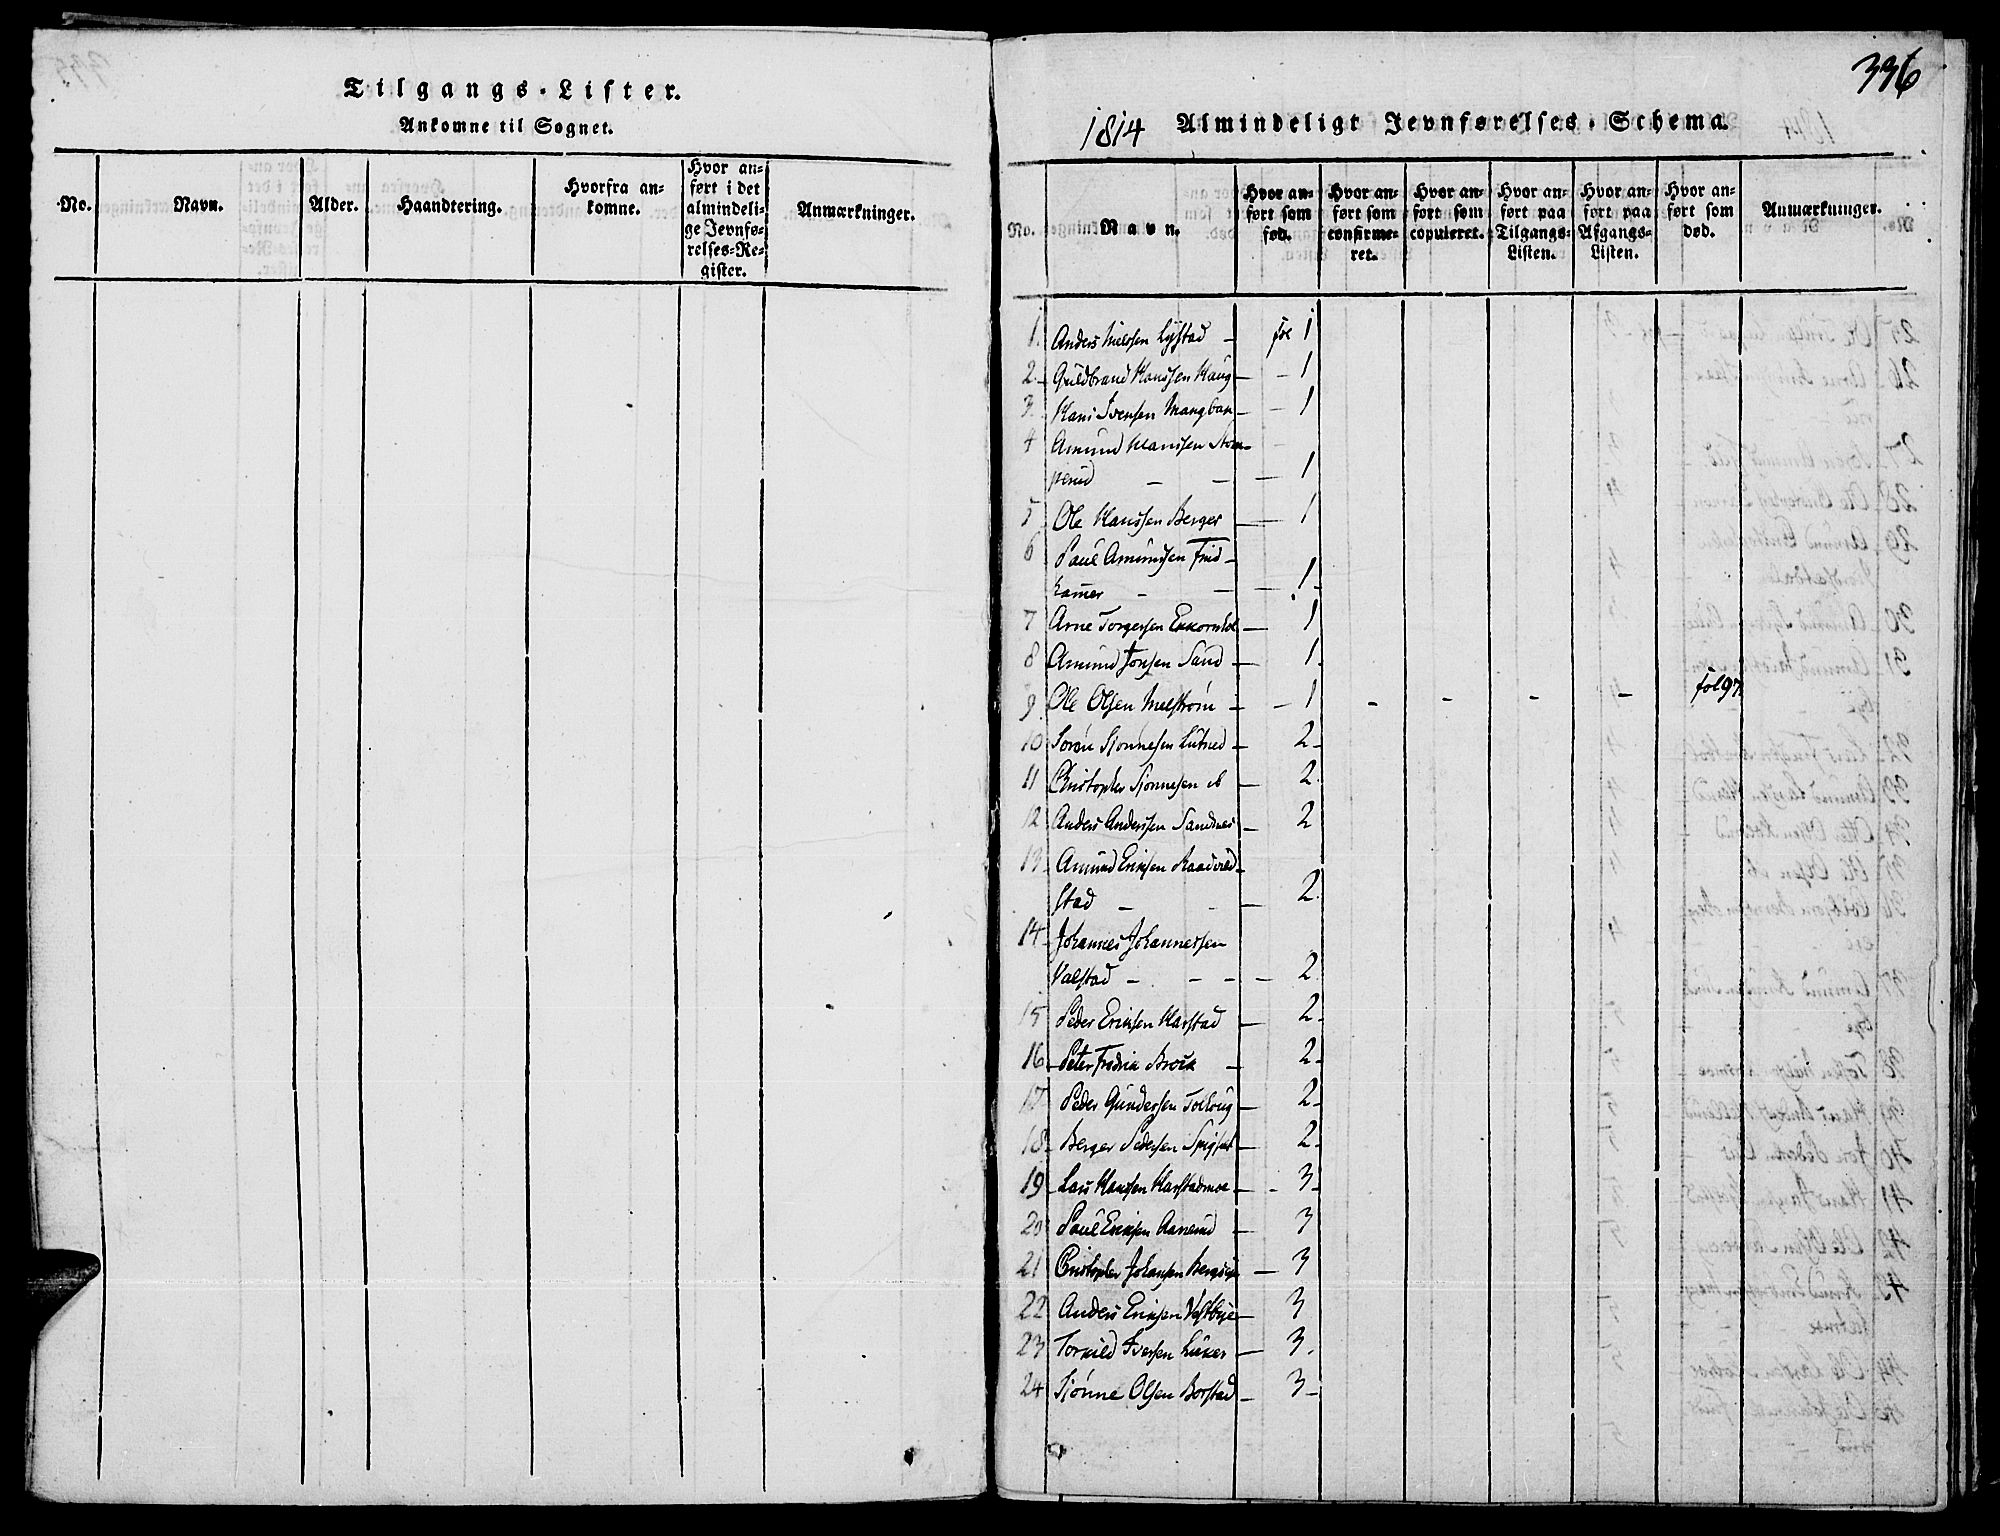 Tilgangs-Lister.
Ankomne til Sognet.
No.
Navn.
Alder.
Haandtering.
Hvorfra an-
komne.
Hvor an-
ført i det
almindeli-
ge Jevnfø-
relses-Re-
gister.
Anmærkninger.
336
1814 Almindeligt Jevnførelses-Schema.
No.
Navn.
Hvor an-
ført som
fød.
Hvor an-
ført som
confirme-
ret.
Hvor an-
ført som
copuleret.
Hvor an-
ført paa
Tilgangs-
Listen.
Hvor an-
ført paa
Afgangs-
Listen.
Hvor an-
ført som
død.
Anmærkninger.
1. Anders Nielssen Lystad – fol 1
2. Guldbrand Hanssen Haug – – 1
3. Hans Ivensen Mangban – – 1
4 Amund Hanssen Stom-
perud – – – 1
5 Ole Hanssen Berger – 1
6 Paul Amundsen Frid-
hamer – – – 1
7 Arne Torgersen Ekornhol – 1
8 Amund Jonsen Sand – 1
9 Ole Olsen Melstrøm – – 1 – – – – fol 97
10 Sjonnesen – 2
11 Christopher Sjonnesen ib – 2
12 Anders Anderssen Sandnes – 2
13 Amund Eriksen Raadvild-
stad – – – 2
14 Johannes Johannessen
Valstad – – – – 2
15 Peder Eriksen Harstad – 2
16 Peter Fredrik Brock – 2
17 Peder Gundersen – 2
18 Berger Pedersen – 2
19 Lars Hanssen Harstadmoe – – 3
20 Paul Eriksen Aanerud – 3
21 Christopher Johansen – 3
22 Anders Eriksen Vestbye – 3
23 Torkild Iversen – 3
24 Sjønne Olsen Borstad – 3